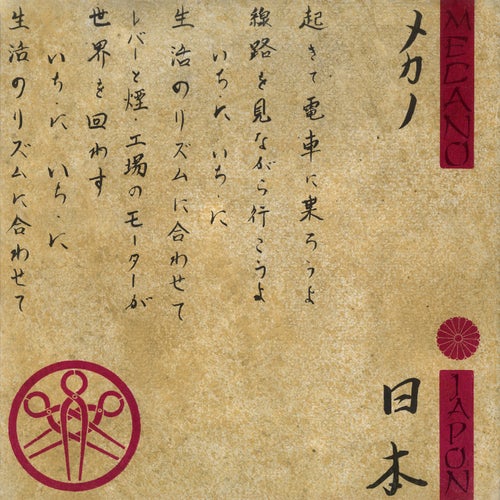 MECANO
JAPON
メカノ
日本
起きて電車に乗ろうよ
線路を見ながら行こうよ
いち・に いち・に
生活のリズムに合わせて
レバーと煙 工場のモーターが
世界を回わす
いち・に いち・に
生活のリズムに合わせて